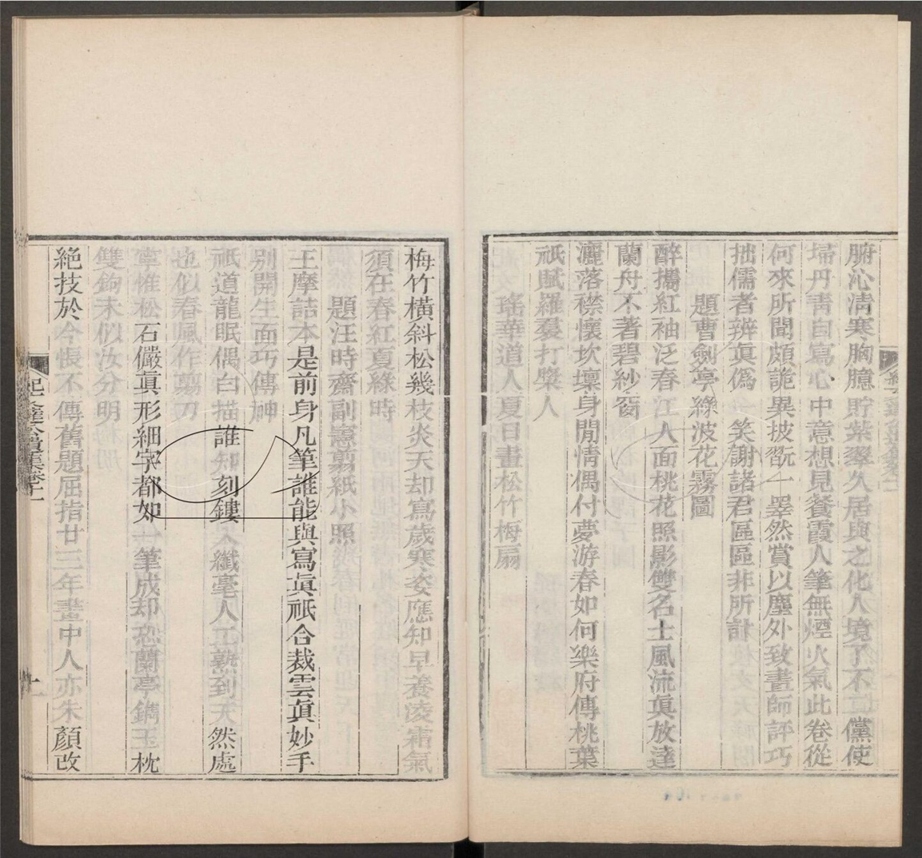 腑沁清寒胸臆貯紫翠久居與之化人境了不異儻使
埽丹青自寫心中意想見餐霞人筆無煙火氣此卷從
何來所聞頗詭異披翫一睪然賞以塵外致畫師評巧
拙儒者辨眞僞一笑謝諸君區區非所計
題曹劍亭綠波花霧圖
醉攜紅袖泛春江人面桃花照影雙名士風流眞放達
蘭舟不著碧紗窗
灑落襟懷坎壈身閒情偶付夢游春如何樂府傳桃葉
祇賦羅裙打槳人
瑤華道人夏日畫松竹梅扇
梅竹橫斜松幾枝炎天却寫歲寒姿應知早養凌霜氣
須在春紅夏綠時
題汪時齋副憲剪紙小照
王摩詰本是前身凡筆誰能與寫眞祇合裁雲眞妙手
別開生面巧傳神
祇道龍眠偶白描誰知刻鏤入纖毫人工熟到天然處
也似春風作剪刀
寧惟松石儼眞形細字都如一筆成却恐蘭亭鐫玉枕
雙鉤未似汝分明
絕技於今悵不傳舊題屈指廿三年畫中人亦朱顏改